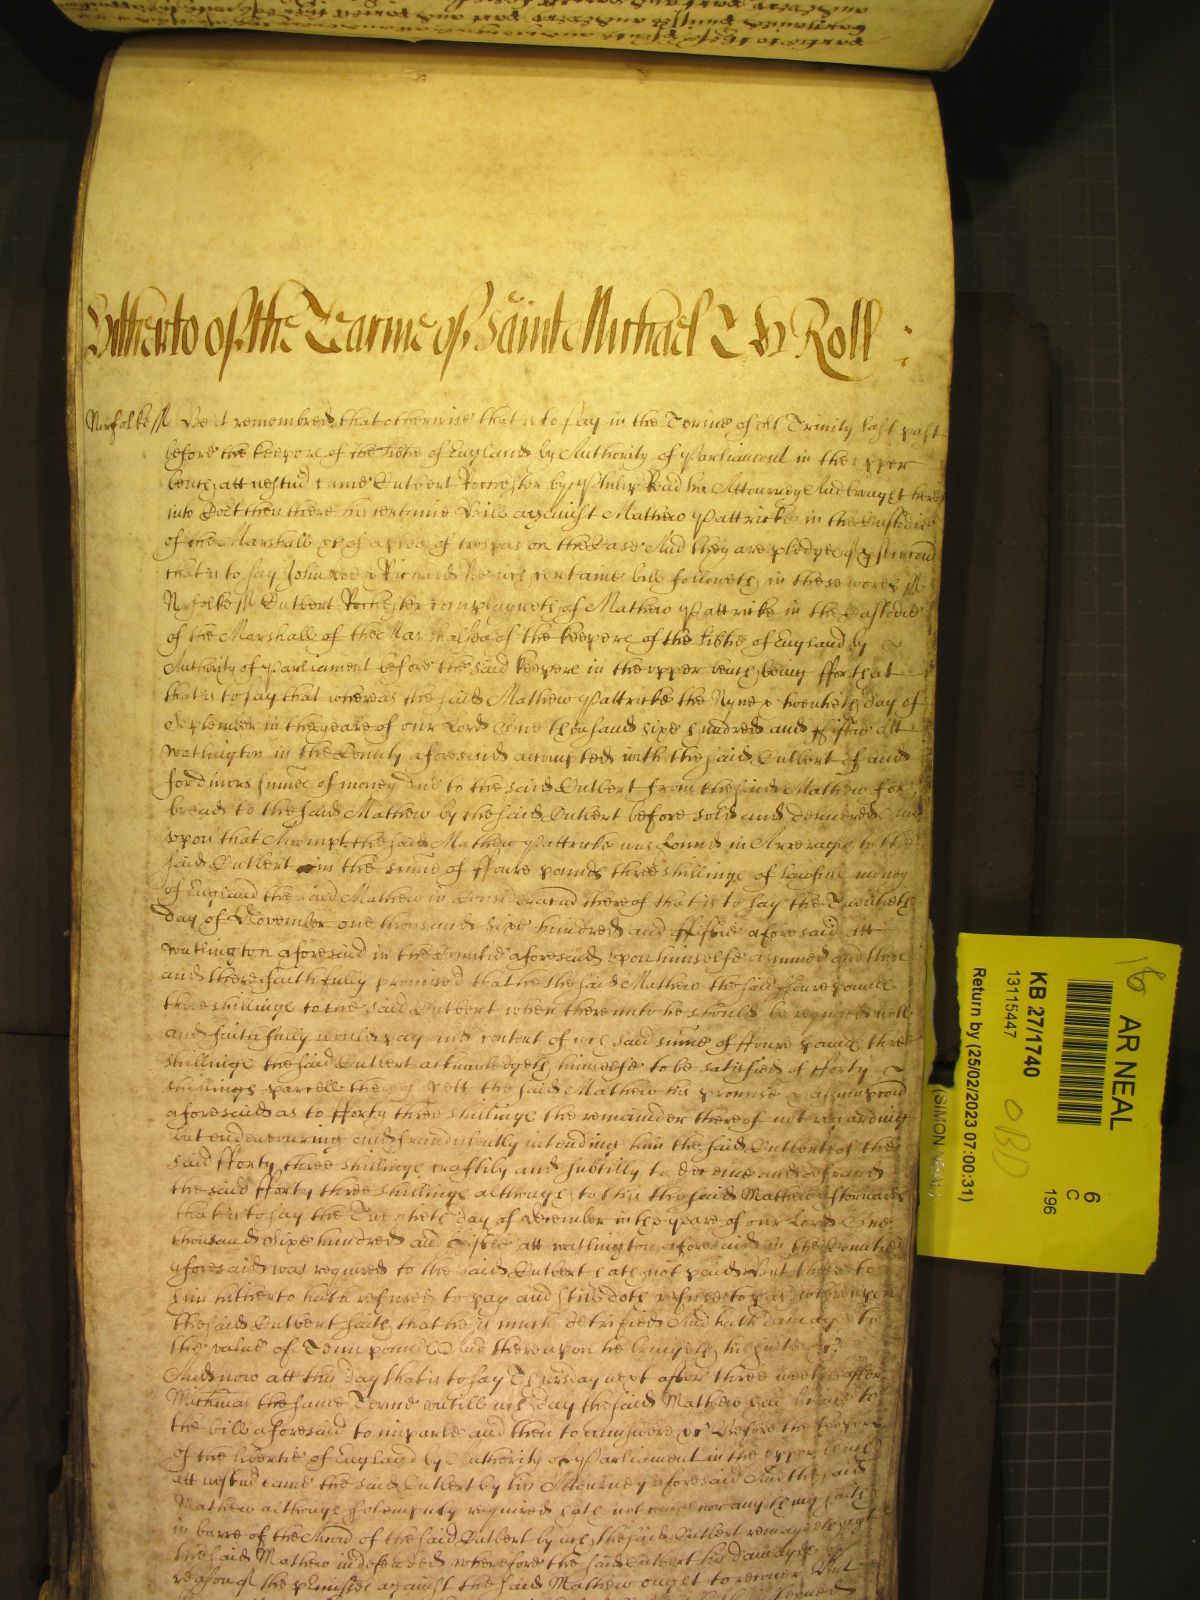 Hitherto of the Tearme of Saint Michael Roll
Norfolke Be it remembred that otherwise that is to say in the Terme of Trinity last past
before the keepers of the libtie of England by Authority of Parliament in the upper
bench att came Cutbert Rochester by Phillip Read his Attourney And brought here
into then there his certaine Bill against Mathew Pattricke in the Custodie
of the Marshall of a plea of trespas on the Case And they are pledges
that is to say John Doe Richard certaine bill followeth in these words
Norfolke Cutbert Rochester complayneth of Mathew Pattricke in the Custodie
of the Marshall of the Marshalsea of the keepers of the libtie of England by
Authority of Parliament before the said keepers in the upper bench being ffor that
that is to say that whereas the said Mathew Pattricke the Nyne & twentieth day of
September in the yeare of our Lord One thousand sixe hundred and ffiftie att
watlington in the County aforesaid accompted with the said Cutbert of and
for divers summes of money due to the said Cutbert from the said Mathew for
bread to the said Mathew by the said Cutbert before sold and delivered And
upon that Accompt the said Mathew Pattricke was found in Arrerage to the
said Cutbert in the summe of ffoure pounds three shillinge of lawfull money
of England the said Mathew in Consideracion thereof that is to say the Twentieth
day of November one thousand sixe hundred and ffiftie aforesaid att
watlington aforesaid in the Countie aforesaid upon himselfe assumed and then
and there faithfully promised that he the said Mathew the said ffoure pounds
three shillinge to the said Cutbert when thereunto he should be required well
and faithfully would pay and content of wch said summe of ffoure pounds three
shillinge the said Cutbert acknowledgeth himselfe to be satisfied of fforty
shillings parcell thereof Yett the said Mathew his promise & assumpcion
aforesaid as to fforty three shillinge the remainder thereof not regarding
but endeavouring and fraudulently intending him the said Cutbert of the
said fforty three shillinge craftily and subtilly to deceive and defraud
the said fforty three shillinge although to this the said Mathew afterwards
that is to say the Twentieth day of December in the yeare of our Lord One
thousand sixe hundred and ffiftie att watlington aforesaid in the Countie
aforesaid was required to the said Cutbert hath not paid But these to
him hitherto hath refused to pay and still doth refuse to pay whereupon
the said Cutbert saith that he is much detrified And hath damage to
the value of Tenn pounds And thereupon he bringeth his suite &c
And now att this day that is to say Thursday next after three weekes after
Michmas the same Terme untill wch day the said Mathew had leave to
the bill aforesaid to imparle and then to answere &c Before the keepers
of the libertie of England by Authority of Parliament in the upper bench
att came the said Cutbert by his Attourney aforesaid And the said
Mathew although solempnly required hath not come nor any thing saith
in barre of the Accion of the said Cutbert by wch the said Cutbert remayneth agt
the said Mathew indefended wherefore the said Cutbert his damages
reason of the premisses against the said Mathew ought to recover But
AR NEAL
6
C
196
KB 27/1740
13115447
Return by (25/02/2023 07:00:31)
(SIMON NEAL)